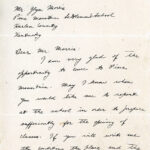 Mr. Glyn Morris
Pine Mountain Settlement School
Harlan County
Kentucky
Dear Mr. Morris
I am very glad of the
opportunity to come to Pine
Mountain. May I know when
you would like me to report
at the school in order to prepare
sufficiently for the opening of
classes. If you will write me
the place and the